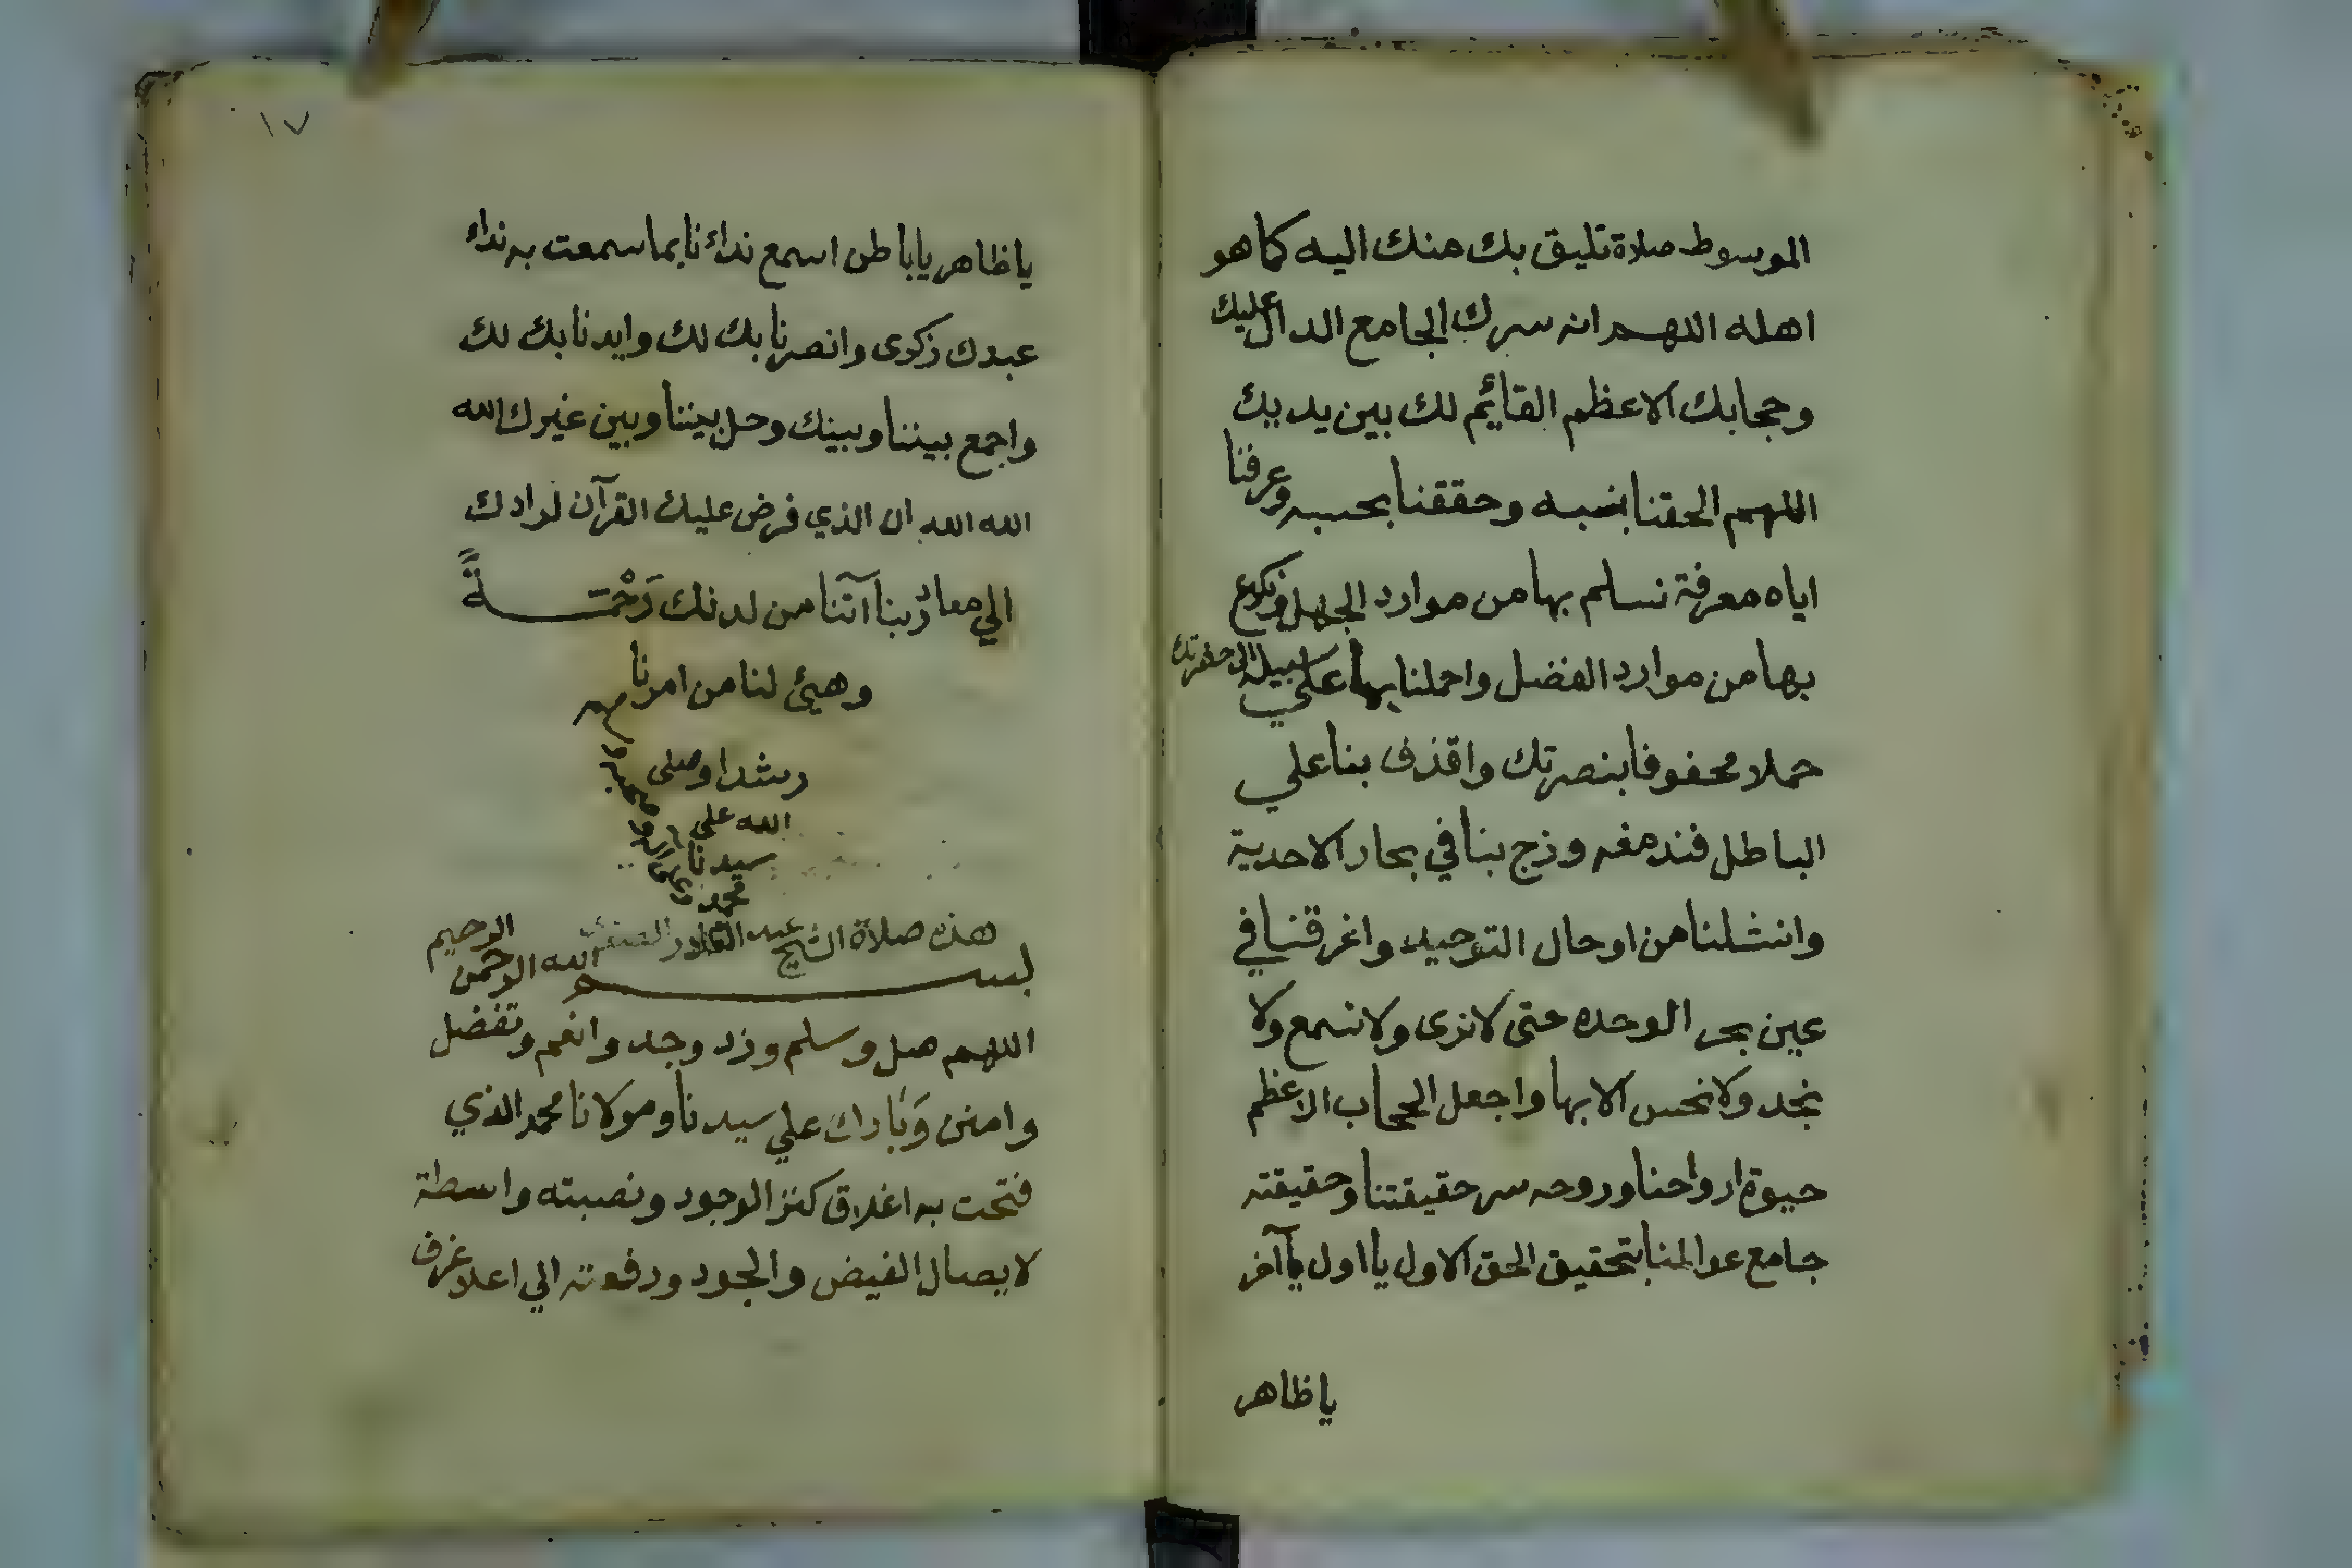 الموسوط صلاة تليق بك منك اليه كما هو
اهله اللهم انه سرك الجامع الدال عليك
وحجابك الاعظم القائيم لك بين يديك
اللهم الحقنا بنسبه وحققنا بحسبه وعرفنا
اياه معرفة نسلم بها من موارد الجهل ونكرع
بها من موارد الفضل واحملنا بها علي سبيله الى حضرتك
حملا محفوفا بنصرتك واقذف بنا علي
الباطل فندمغه وزج بنا في بحار الاحدية
وانشلنا من اوحال التوحيد واغرقنا في
عين بحر الوحده حتى لا نرى ولا نسمع ولا
نجد ولا نحس الا بها واجعل الحجاب الاعظم
حيوة ارواحنا وروحه سر حقيقتنا وحقيقته
جامع عوالمنا بتحقيق الحق الاول يا اول يا آخر
يا ظاهر
١٧
يا ظاهر يا باطن اسمع نداءنا بما سمعت به نداء
عبدك زكرى وانصرنا بك لك وايدنا بك لك
واجمع بيننا وبينك وحل بيننا وبين غيرك الله
الله الله ان الذي فرض عليك القرآن لرادك
الي معاد ربنا آتنا من لدنك رَحْمَةً
وهيئ لنا من امرنا
رشدا وصلى
الله علي
سيدنا
محمد
هذه صلاة الشيخ عبد القادر
بسم الله الرحمن الرحيم
اللهم صل وسلم وزد وجد وانعم وتفضل
وامنن وَبَارك علي سيدنا ومولانا محمد الذي
فتحت به اغلاق كنز الوجود ونصبته واسطة
لايصال الفيض والجود ورفعته الي اعلا غرف